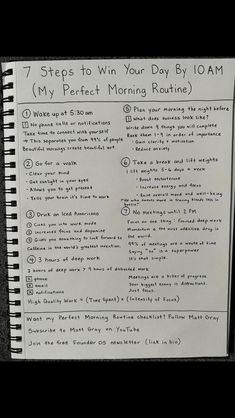 7 Steps to Win Your Day By 10 AM
(My Perfect Morning Routine)
① Wake up at 5:30 am
No phone calls or notifications
Take time to connect with yourself
→ This separates you from 99% of people
Beautiful mornings create beautiful art
② Go for a walk
- Clear your mind
- Get sunlight in your eyes
- Allows you to get present
- Tells your brain it's time to work
③ Drink an Iced Americano
① Gets you into work mode
② Increases focus and dopamine
③ Gives you something to look forward to
Caffeine is the world's greatest invention.
④ 3 hours of deep work
3 hours of deep work > 9 hours of distracted work
phone
email
notifications
High Quality Work = (Time Spent) x (Intensity of Focus)
⑤ Plan your morning the night before
What does success look like?
Write down 9 things you will complete
Rank them 1-9 in order of importance
- Gain clarity + motivation
- Reduce anxiety
⑥ Take a break and lift weights
Lift weights 5-6 days a week
- Boost testosterone
- Increase energy and focus
- Build overall mood and well-being
"He who sweats more in training bleeds less in
⑦ No meetings until 2 PM
Focus on one thing: focused deep work
Momentum is the most addictive drug in
the world.
99% of meetings are a waste of time
Saying "no" is a superpower
It's that simple.
Meetings are a killer of progress
Your biggest enemy is distractions.
Just focus.
Want my Perfect Morning Routine checklist? Follow Matt Gray
Subscribe to Matt Gray on YouTube
Join the free Founder OS newsletter (link in bio)